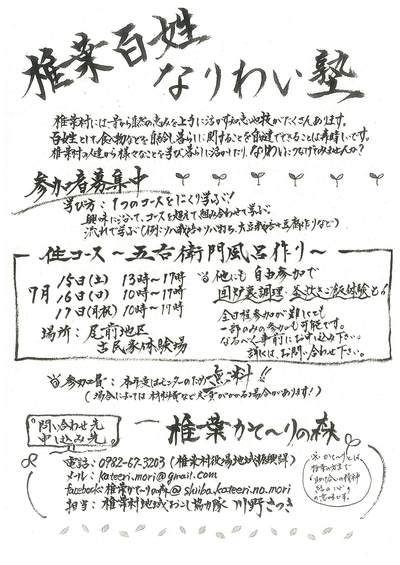 椎葉百姓
なりわい塾
椎葉村には昔から自然の恵みを上手に活かす知恵や技がたくさんあります。
百姓として、食や物などを自給し暮らしに関することを自分達でできることは素晴しいです。
椎葉村の人達から様々なことを学び、暮らしに活かしたり、なりわいにつなげてみませんか？
参加者募集中
学び方：1つのコースをじっくり学ぶ！
興味に沿って、コースを超えて組み合わせて学ぶ。
住コース～五右衛門風呂作り～
7月
15日(土) 13時～17時
16日(日) 10時～17時
17日(月祝) 10時～17時
場所：尾前地区
古民家体験場
他にも自由参加で
囲炉裏調理・釜炊きご飯体験も
全日程参加が難しくても
一部のみの参加も可能です。
なるべく事前にお申し込み下さい。
詳しくは、お問い合わせ下さい。
参加費：本年度はモニターのため無料!!
(場合によっては材料費など実費がかかる場合があります！)
問い合わせ先
申し込み先
椎葉かてーりの森
電話：0982-67-3203 (椎葉村役場地域振興課)
メール：kateeri.mori@gmail.com
facebook：椎葉かてーりの森@shiiba.kateeri.no.mori
担当：椎葉村地域おこし協力隊 川野さつき